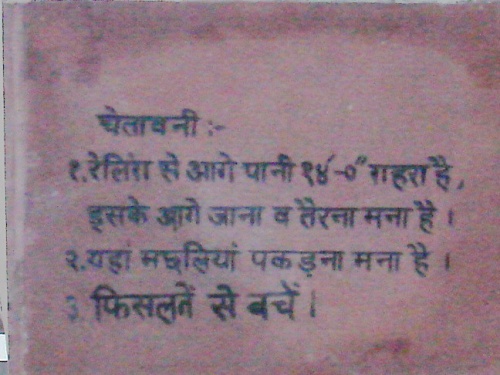 चेतावनी :-
१. रेलिंग से आगे पानी १४'-०" गहरा है,
इसके आगे जाना व तैरना मना है ।
२. यहां मछलियां पकड़ना मना है ।
3. फिसलने से बचें ।